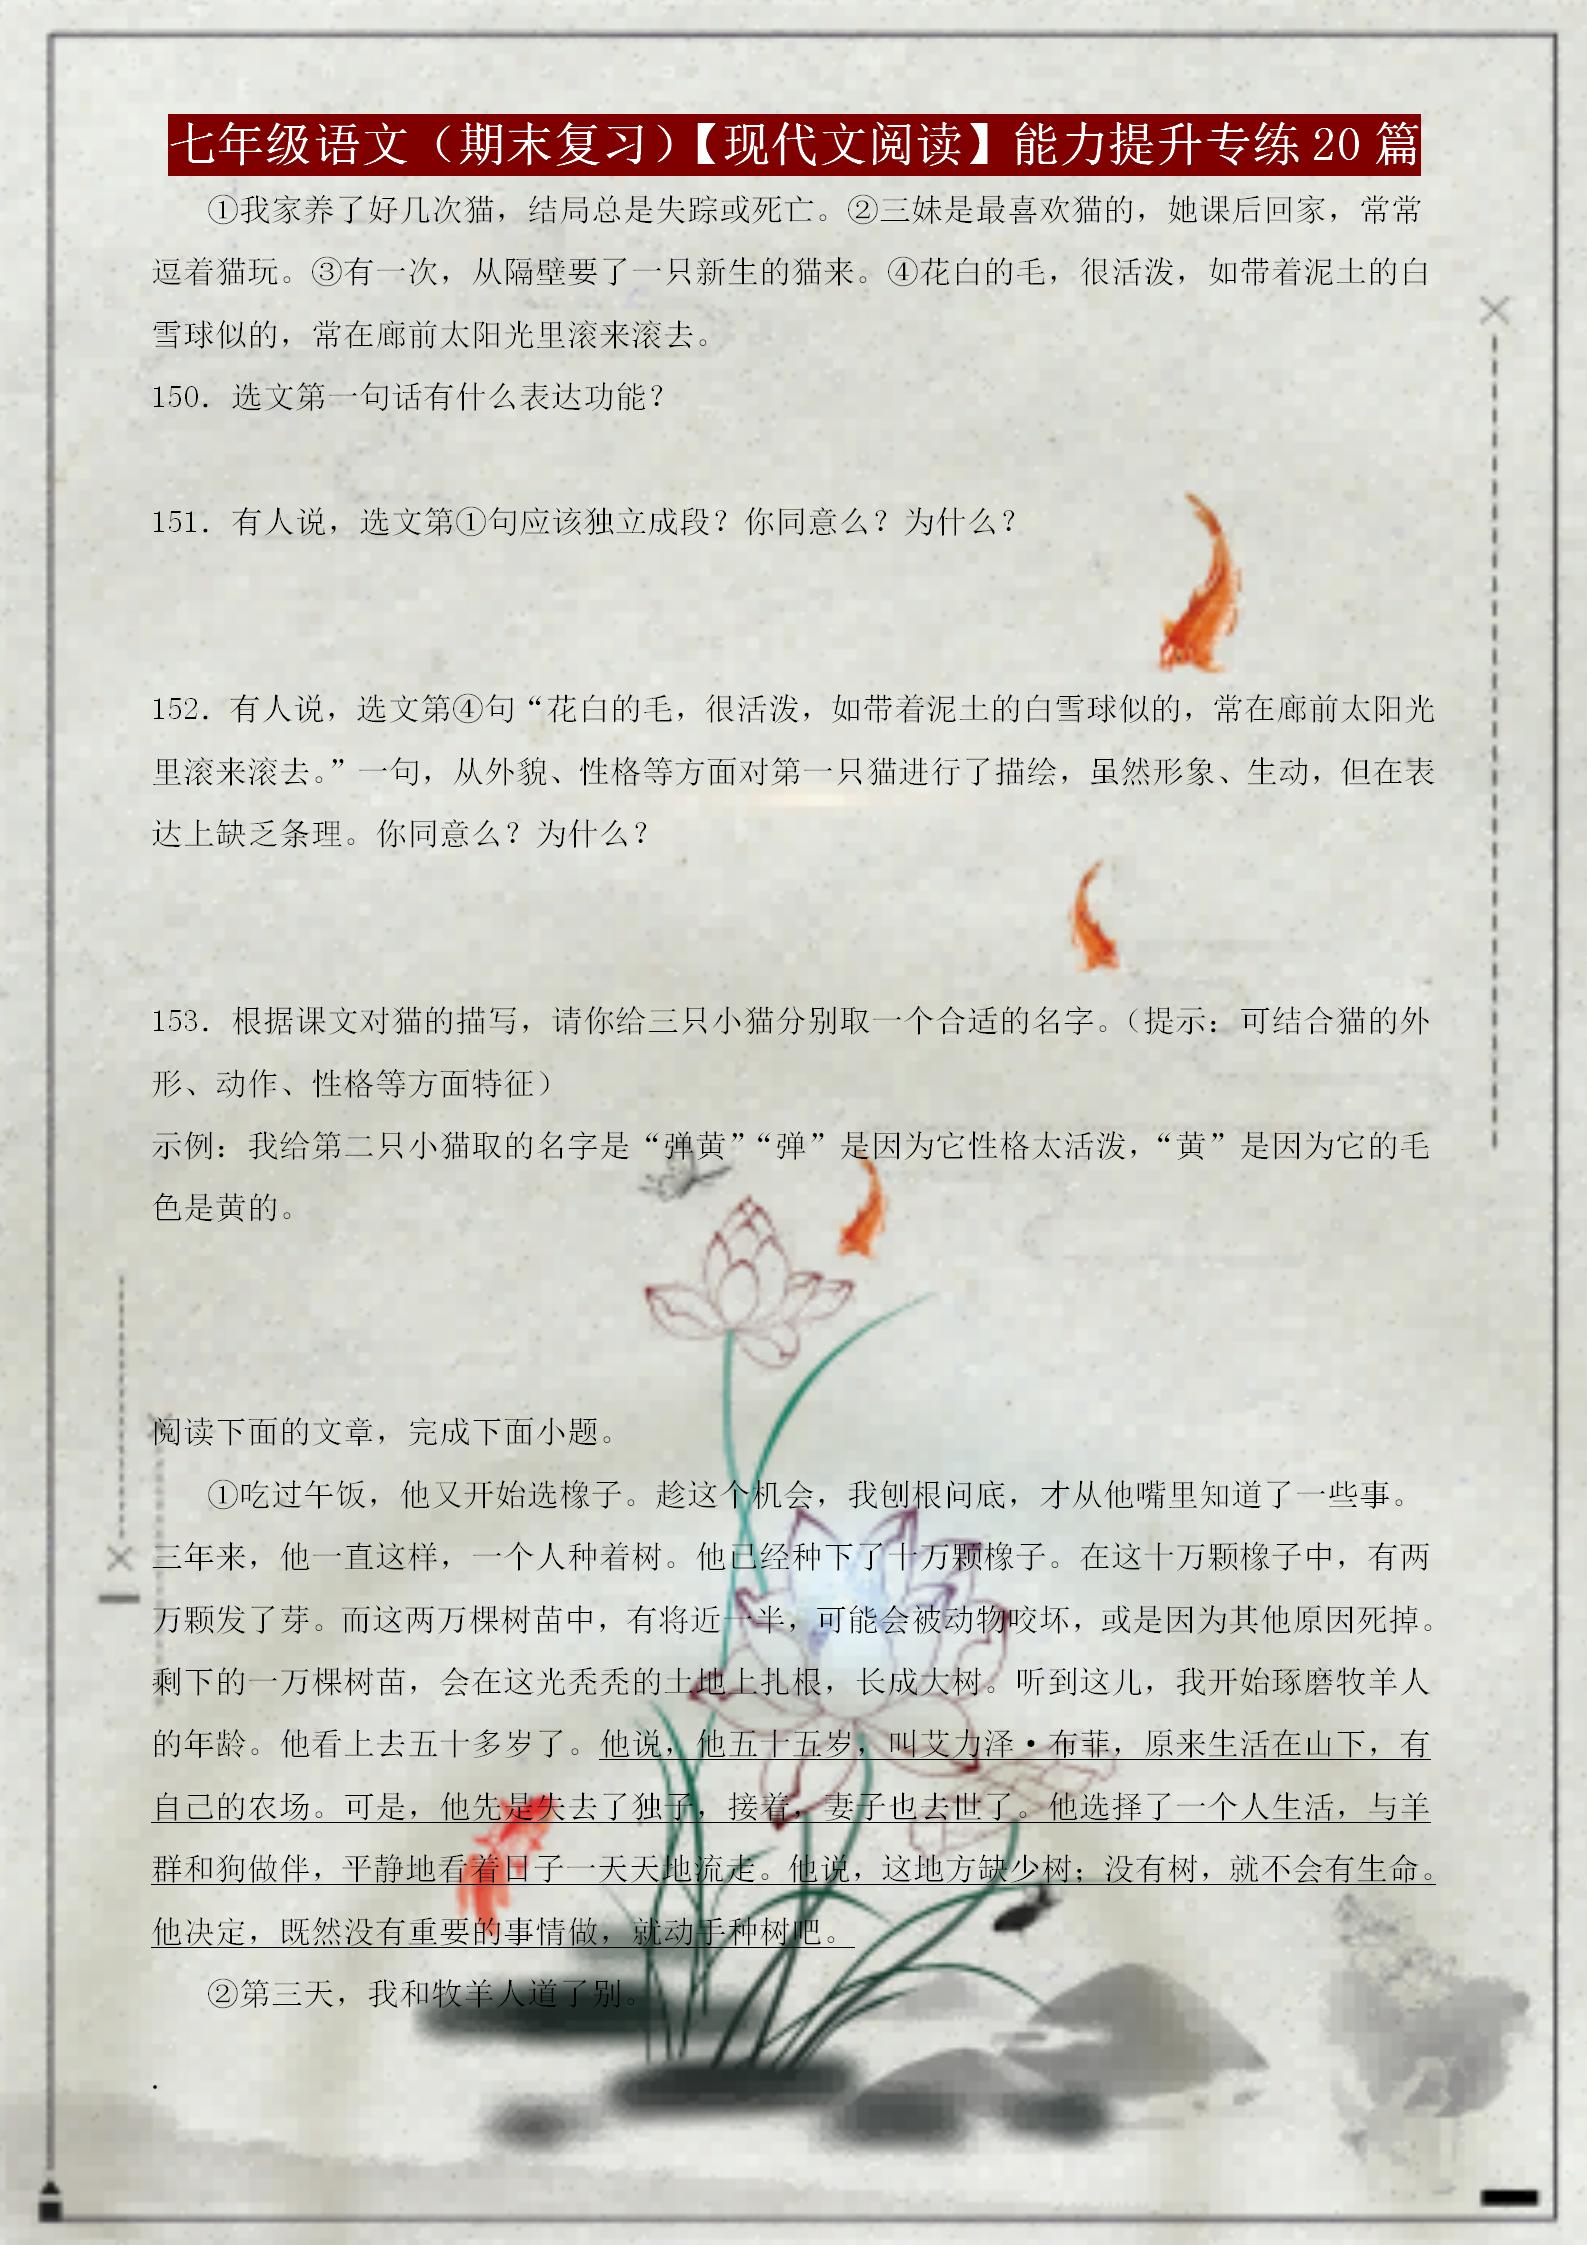 七年级语文（期末复习）【现代文阅读】能力提升专练20篇
①我家养了好几次猫，结局总是失踪或死亡。②三妹是最喜欢猫的，她课后回家，常常
逗着猫玩。③有一次，从隔壁要了一只新生的猫来。④花白的毛，很活泼，如带着泥土的白
雪球似的，常在廊前太阳光里滚来滚去。
150．选文第一句话有什么表达功能？
151．有人说，选文第①句应该独立成段？你同意么？为什么？
152．有人说，选文第④句“花白的毛，很活泼，如带着泥土的白雪球似的，常在廊前太阳光
里滚来滚去。”一句，从外貌、性格等方面对第一只猫进行了描绘，虽然形象、生动，但在表
达上缺乏条理。你同意么？为什么？
153．根据课文对猫的描写，请你给三只小猫分别取一个合适的名字。（提示：可结合猫的外
形、动作、性格等方面特征）
示例：我给第二只小猫取的名字是“弹黄”“弹”是因为它性格太活泼，“黄”是因为它的毛
色是黄的。
阅读下面的文章，完成下面小题。
①吃过午饭，他又开始选橡子。趁这个机会，我刨根问底，才从他嘴里知道了一些事。
三年来，他一直这样，一个人种着树。他已经种下了十万颗橡子。在这十万颗橡子中，有两
万颗发了芽。而这两万棵树苗中，有将近一半，可能会被动物咬坏，或是因为其他原因死掉。
剩下的一万棵树苗，会在这光秃秃的土地上扎根，长成大树。听到这儿，我开始琢磨牧羊人
的年龄。他看上去五十多岁了。他说，他五十五岁，叫艾力泽·布菲，原来生活在山下，有
自己的农场。可是，他先是失去了独子，接着，妻子也去世了。他选择了一个人生活，与羊
群和狗做伴，平静地看着日子一天天地流走。他说，这地方缺少树；没有树，就不会有生命。
他决定，既然没有重要的事情做，就动手种树吧。
②第三天，我和牧羊人道了别。
.